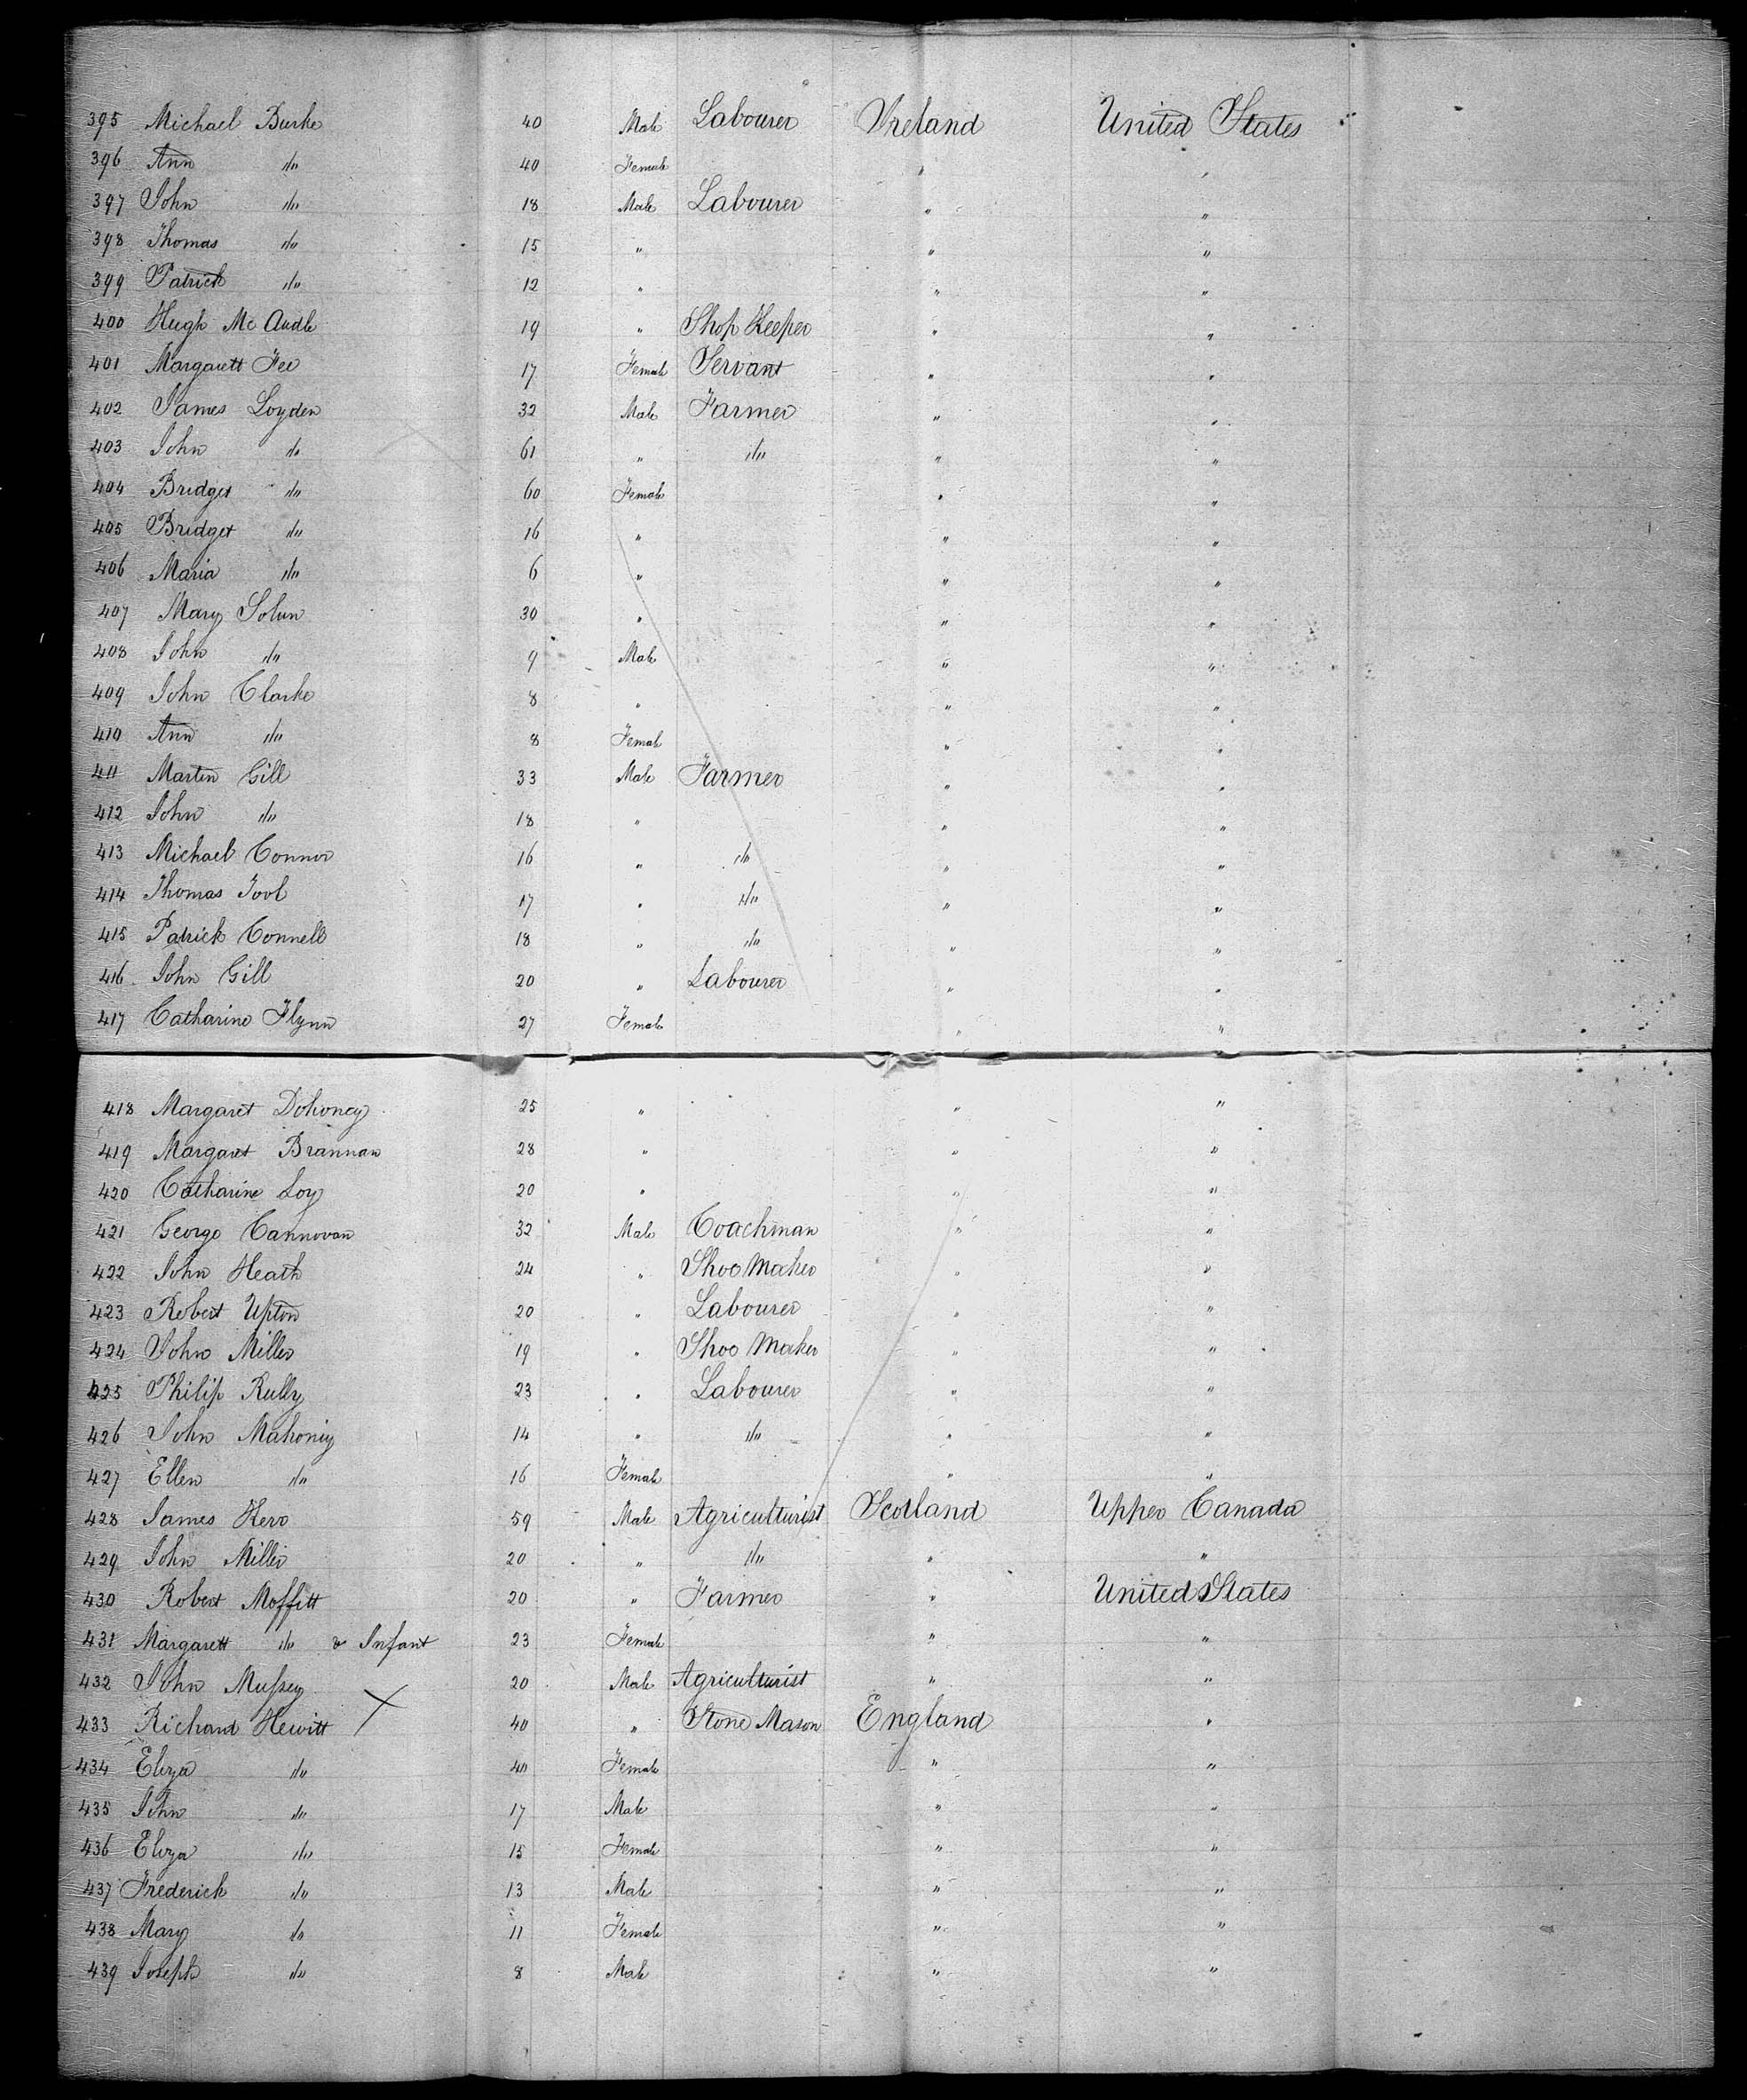 395 Michael Burke 40 Male Labourer Ireland United States
396 Ann do 40 Female " "
397 John do 18 Male Labourer " "
398 Thomas do 15 " " "
399 Patrick do 12 " " "
400 Hugh Mc Ardle 19 " Shop Keeper " "
401 Margarett Fee 17 Female Servant " "
402 James Loyden 32 Male Farmer " "
403 John do 61 " do " "
404 Bridget do 60 Female " "
405 Bridget do 16 " " "
406 Maria do 6 " " "
407 Mary Solun 30 " " "
408 John do 9 Male " "
409 John Clarke 8 " " "
410 Ann do 8 Female " "
411 Martin Gill 33 Male Farmer " "
412 John do 18 " " "
413 Michael Connor 16 " do " "
414 Thomas Tool 17 " do " "
415 Patrick Connell 18 " do " "
416 John Gill 20 " Labourer " "
417 Catharine Flynn 27 Female " "
418 Margaret Dohoney 25 " " "
419 Margaret Brannan 28 " " "
420 Catharine Loy 20 " " "
421 George Cannovan 32 Male Coachman " "
422 John Heath 24 " Shoe Maker " "
423 Robert Upton 20 " Labourer " "
424 John Miller 19 " Shoe Maker " "
425 Philip Rully 23 " Labourer " "
426 John Mahoniy 14 " do " "
427 Ellen do 16 Female " "
428 James Kerr 59 Male Agriculturist Scotland Upper Canada
429 John Miller 20 " do " "
430 Robert Moffitt 20 " Farmer " United States
431 Margarett do & Infant 23 Female " "
432 John Mussey 20 Male Agriculturist " "
433 Richard Hewitt X 40 " Stone Mason England "
434 Eliza do 40 Female " "
435 John do 17 Male " "
436 Eliza do 15 Female " "
437 Frederick do 13 Male " "
438 Mary do 11 Female " "
439 Joseph do 8 Male " "